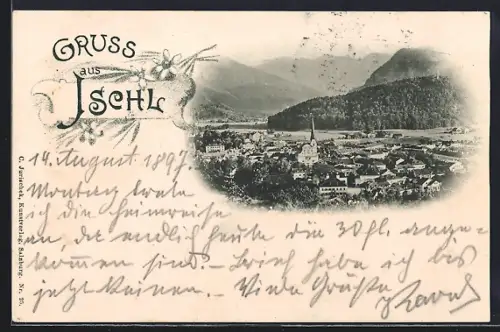 GRUSS
aus
ISCHL
14. August 1897.
Montag trete
ich die Heimreise
an, da endlich heute die 30 fl. ange-
kommen sind. – Brief habe ich bis
jetzt keinen. – Viele Grüße
C. Jurischek, Kunstverlag, Salzburg. Nr. 25.